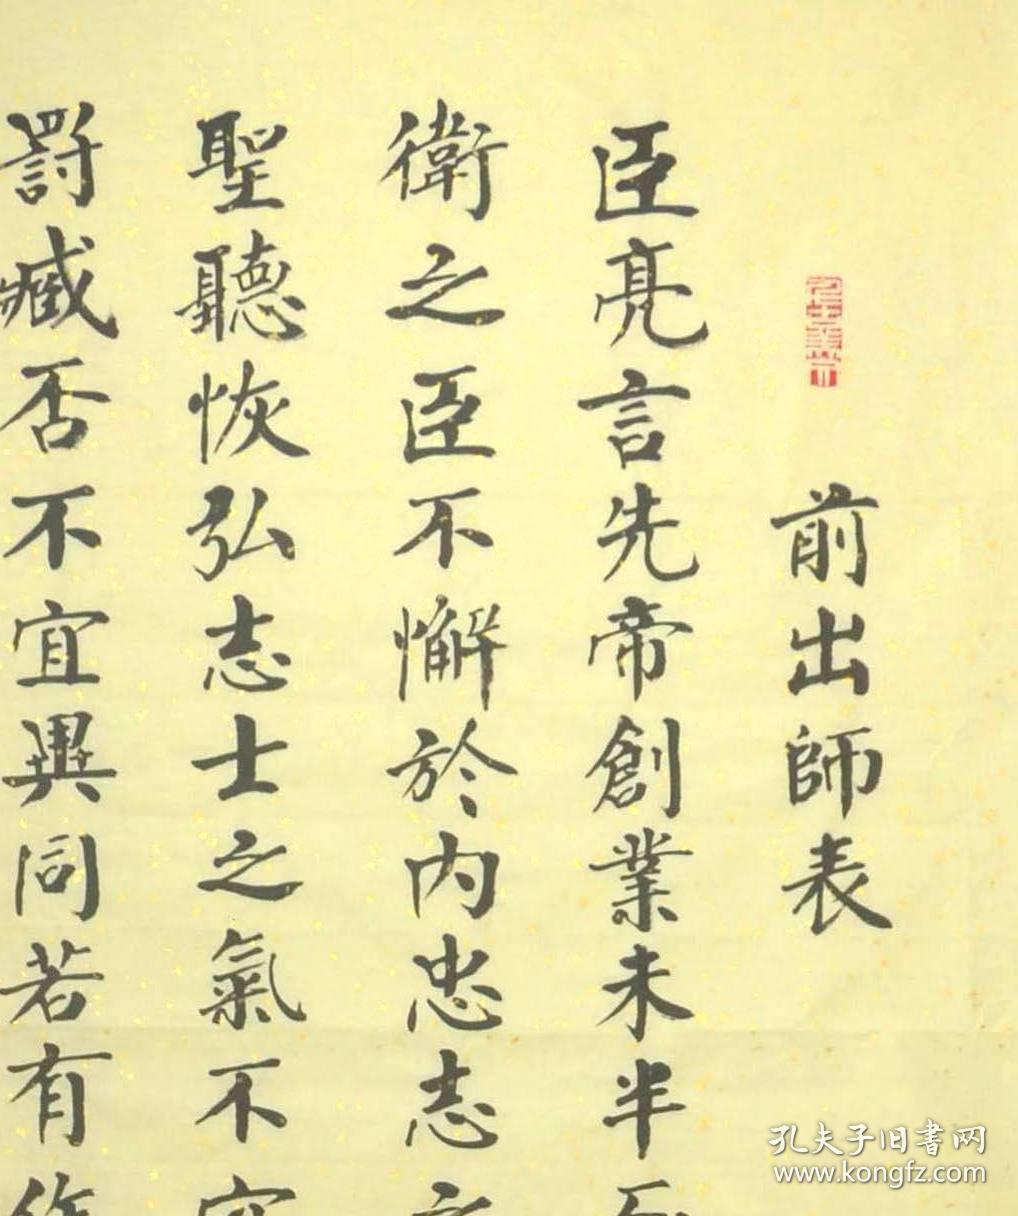 前出師表
臣亮言先帝創業未半
衛之臣不懈於內忠志
聖聽恢弘志士之氣不
罰臧否不宜異同若有
孔夫子旧書网
www.kongfz.com